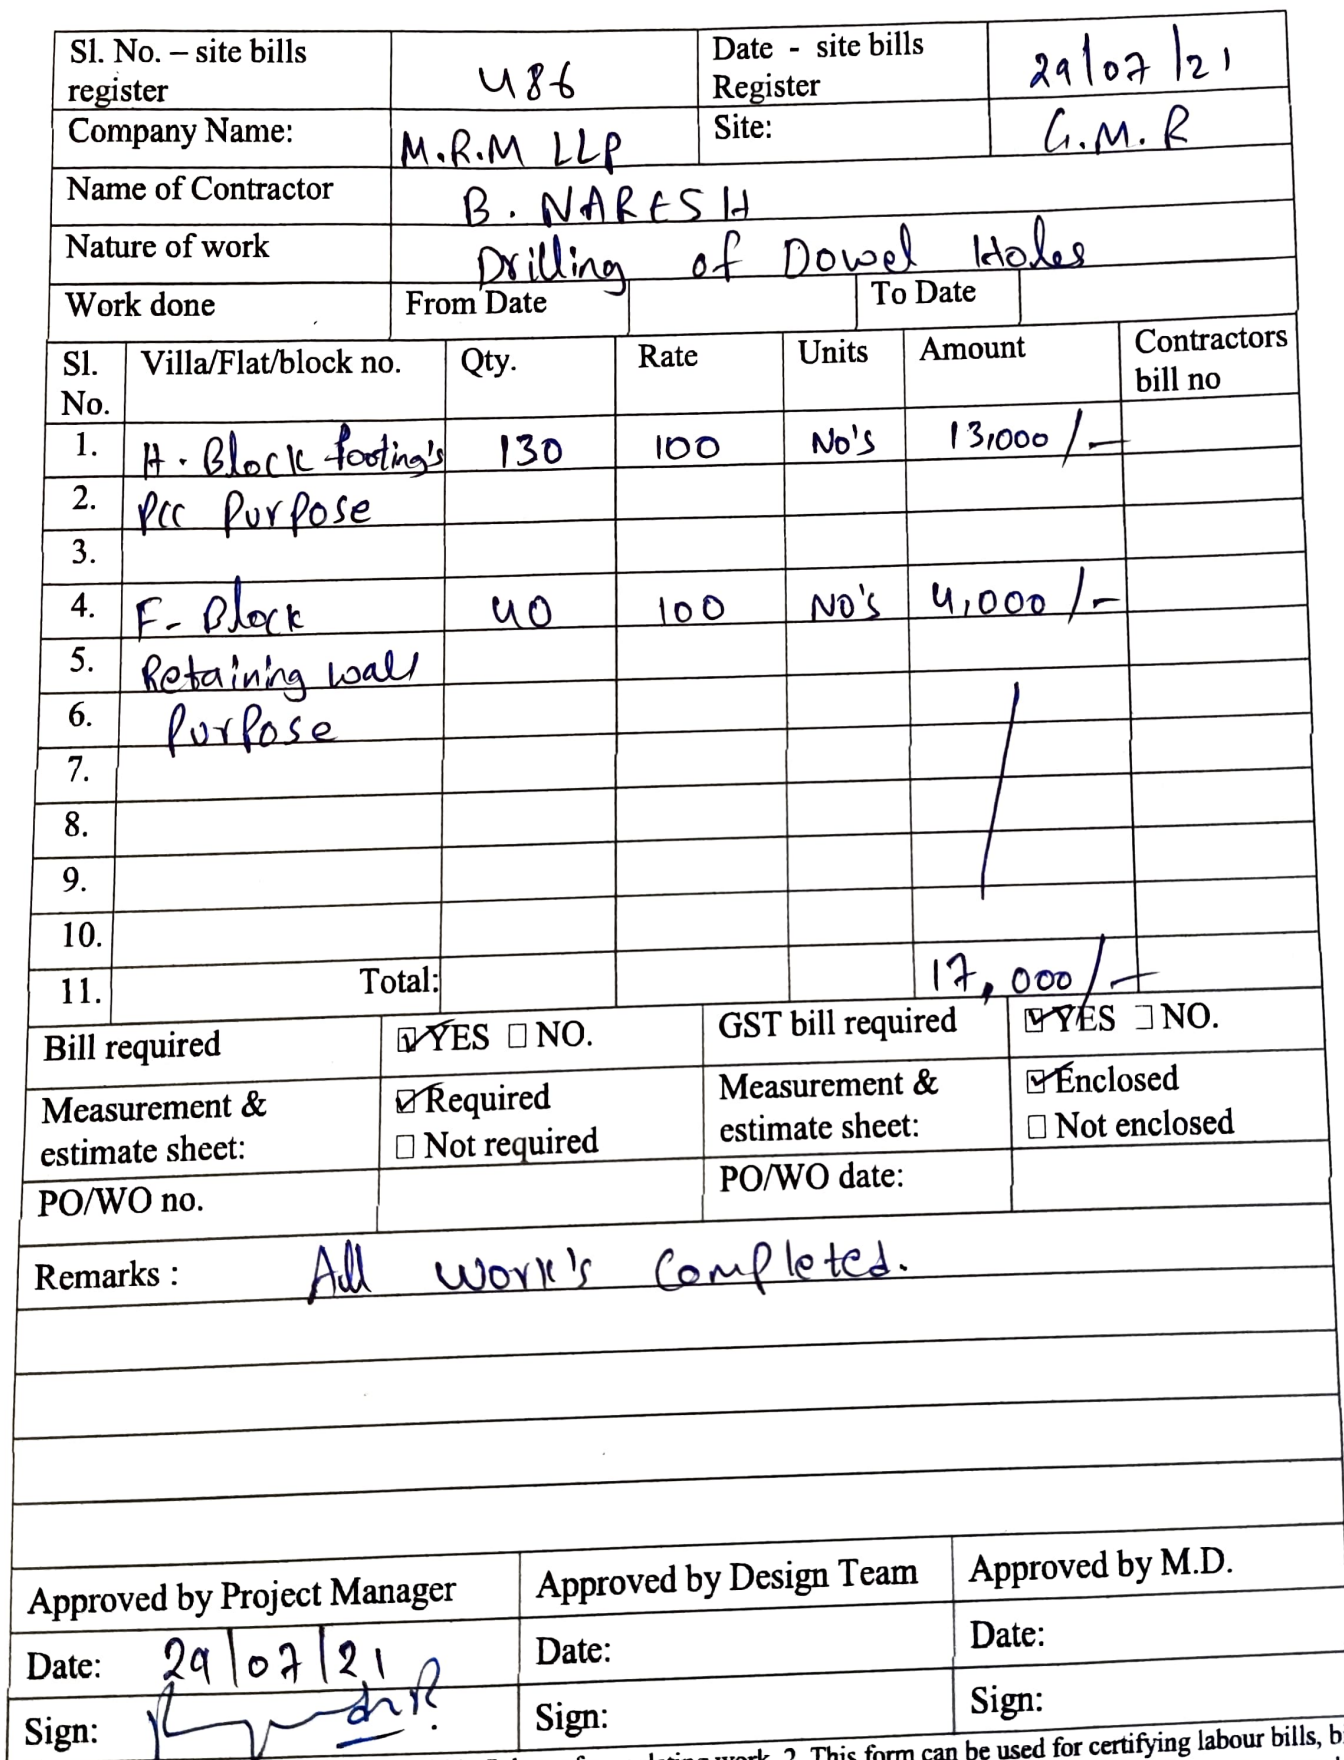 Sl. No. – site bills register 486 Date - site bills Register 29/07/21
Company Name: M.R.M LLP Site: G.M.R
Name of Contractor B. NARESH
Nature of work Drilling of Dowel Holes
Work done From Date To Date
Sl. No. Villa/Flat/block no. Qty. Rate Units Amount Contractors bill no
1. H. Block footing's 130 100 No's 13,000/-
2. PCC Purpose
3.
4. F- Block 40 100 No's 4,000/-
5. Retaining wall
6. Purpose
7.
8.
9.
10.
11. Total: 17,000/-
Bill required ☑ YES ☐ NO. GST bill required ☑ YES ☐ NO.
Measurement & estimate sheet: ☑ Required ☐ Not required Measurement & estimate sheet: ☑ Enclosed ☐ Not enclosed
PO/WO no. PO/WO date:
Remarks : All work's Completed.
Approved by Project Manager Approved by Design Team Approved by M.D.
Date: 29/07/21 Date: Date:
Sign: Sign: Sign:
work. 2. This form can be used for certifying labour bills,